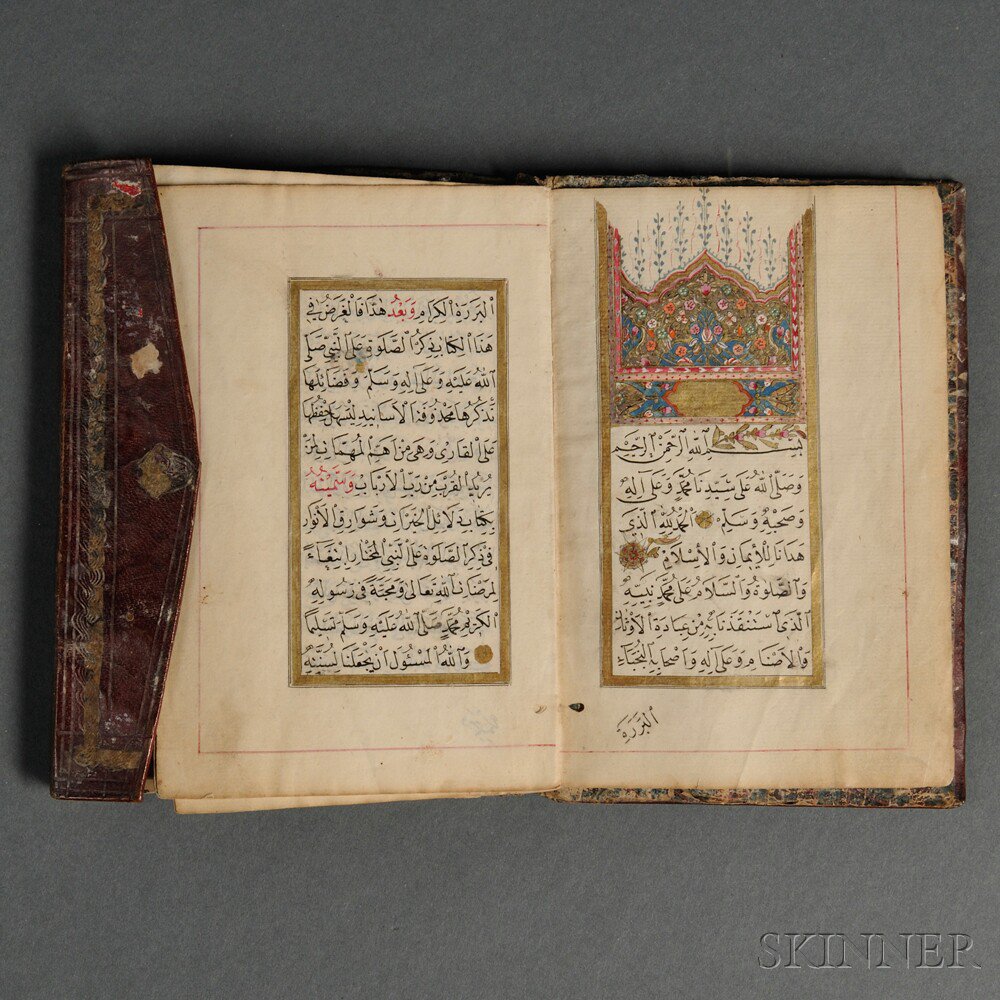 بِسْمِ اللهِ الرَّحْمٰنِ الرَّحِيْمِ
وَصَلَّى اللهُ عَلٰى سَيِّدِنَا مُحَمَّدٍ وَعَلٰى اٰلِهٖ
وَصَحْبِهٖ وَسَلَّمَ اَلْحَمْدُ لِلّٰهِ الَّذِى
هَدَانَا لِلْاِيْمَانِ وَالْاِسْلَامِ
وَالصَّلٰوةُ وَالسَّلَامُ عَلٰى مُحَمَّدٍ نَبِيِّهِ
الَّذِى اسْتَنْقَذَنَا بِهٖ مِنْ عِبَادَةِ الْاَوْثَانِ
وَالْاَصْنَامِ وَعَلٰى اٰلِهٖ وَاَصْحَابِهِ النُّجَبَاءِ
الْبَرَرَةِ
الْبَرَرَةِ الْكِرَامِ وَبَعْدُ هٰذَا فَالْغَرَضُ فِى
هٰذَا الْكِتَابِ ذِكْرُ الصَّلٰوةِ عَلَى النَّبِىِّ صَلَّى
اللهُ عَلَيْهِ وَعَلٰى اٰلِهٖ وَسَلَّمَ وَفَضَائِلِهَا
نَذْكُرُهَا مَحْذُوفَةَ الْاَسَانِيدِ لِيَسْهُلَ حِفْظُهَا
عَلَى الْقَارِى وَهِىَ مِنْ اَهَمِّ الْمُهِمَّاتِ لِمَنْ
يُرِيدُ الْقُرْبَ مِنْ رَبِّ الْاَرْبَابِ وَسَمَّيْتُهُ
بِكِتَابِ دَلَائِلِ الْخَيْرَاتِ وَشَوَارِقِ الْاَنْوَارِ
فِى ذِكْرِ الصَّلٰوةِ عَلَى النَّبِىِّ الْمُخْتَارِ اِبْتِغَاءً
لِمَرْضَاتِ اللهِ تَعَالٰى وَمَحَبَّةً فِى رَسُولِهِ
الْكَرِيمِ مُحَمَّدٍ صَلَّى اللهُ عَلَيْهِ وَسَلَّمَ تَسْلِيمًا
وَاللهُ الْمَسْئُولُ اَنْ يَجْعَلَنَا لِسُنَّتِهٖ
SKINNER